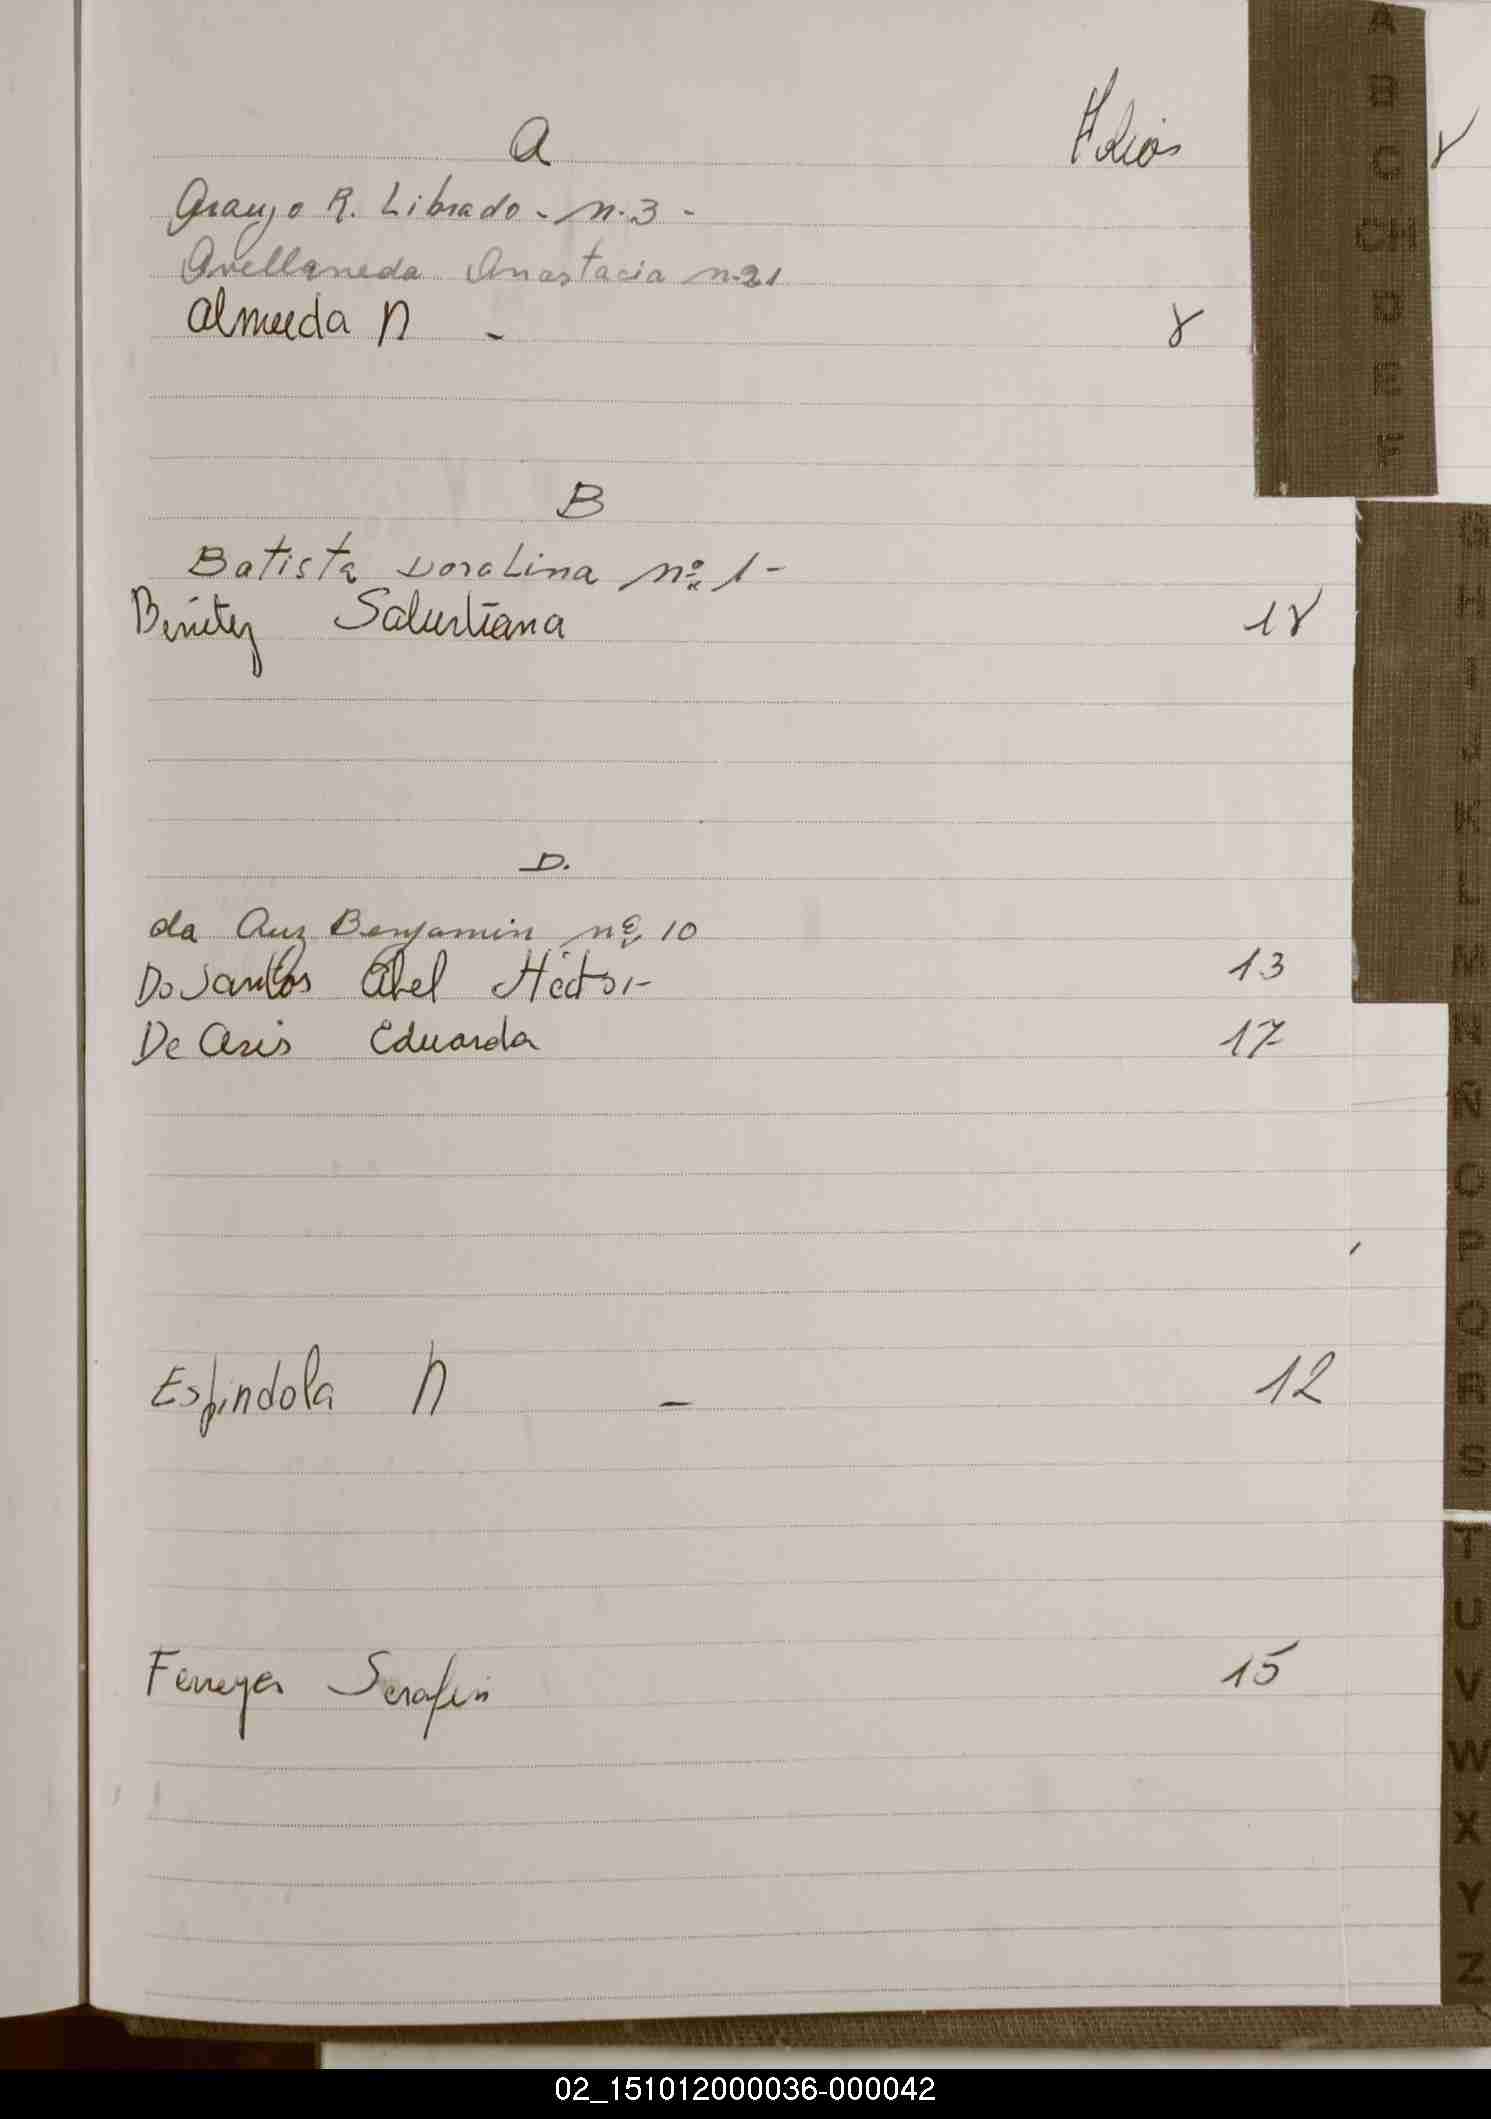 A Folios
Araujo R. Librado - n. 3 -
Avellaneda Anastacia n. 21
Almeida N - 8
B
Batista Doralina nº 1 -
Benitez Salustiana 18
D.
da Cruz Benjamin nº 10
Do Santos Abel Hector - 13
De Asis Eduarda 17
Espindola N - 12
Ferreyra Serafin 15
A
B
C
CH
D
E
F
G
H
I
J
K
L
M
N
Ñ
O
P
Q
R
S
T
U
V
W
X
Y
Z
02_151012000036-000042